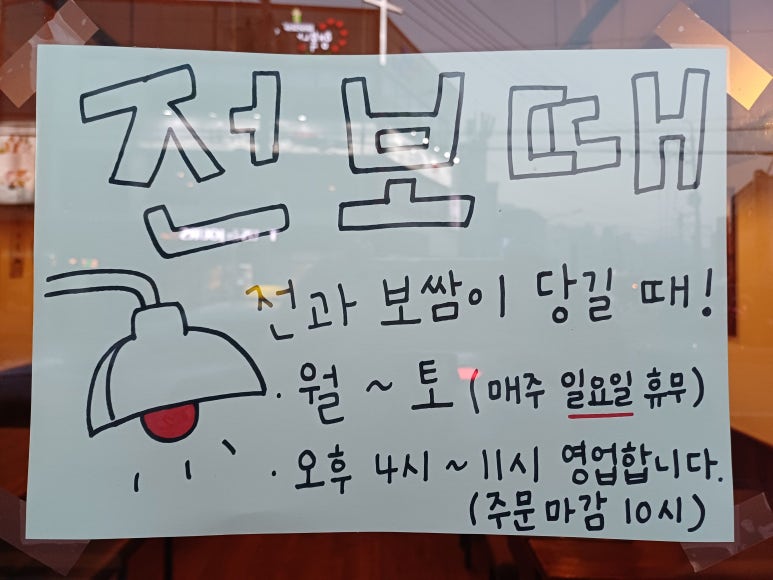 전보때
전과 보쌈이 당길 때!
· 월 ~ 토 (매주 일요일 휴무)
· 오후 4시 ~ 11시 영업합니다.
(주문 마감 10시)